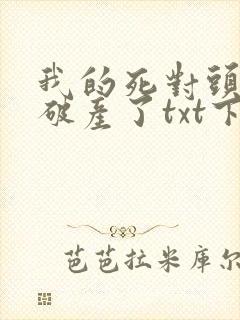 我的死對頭
破產了txt下
芭芭拉米库尔